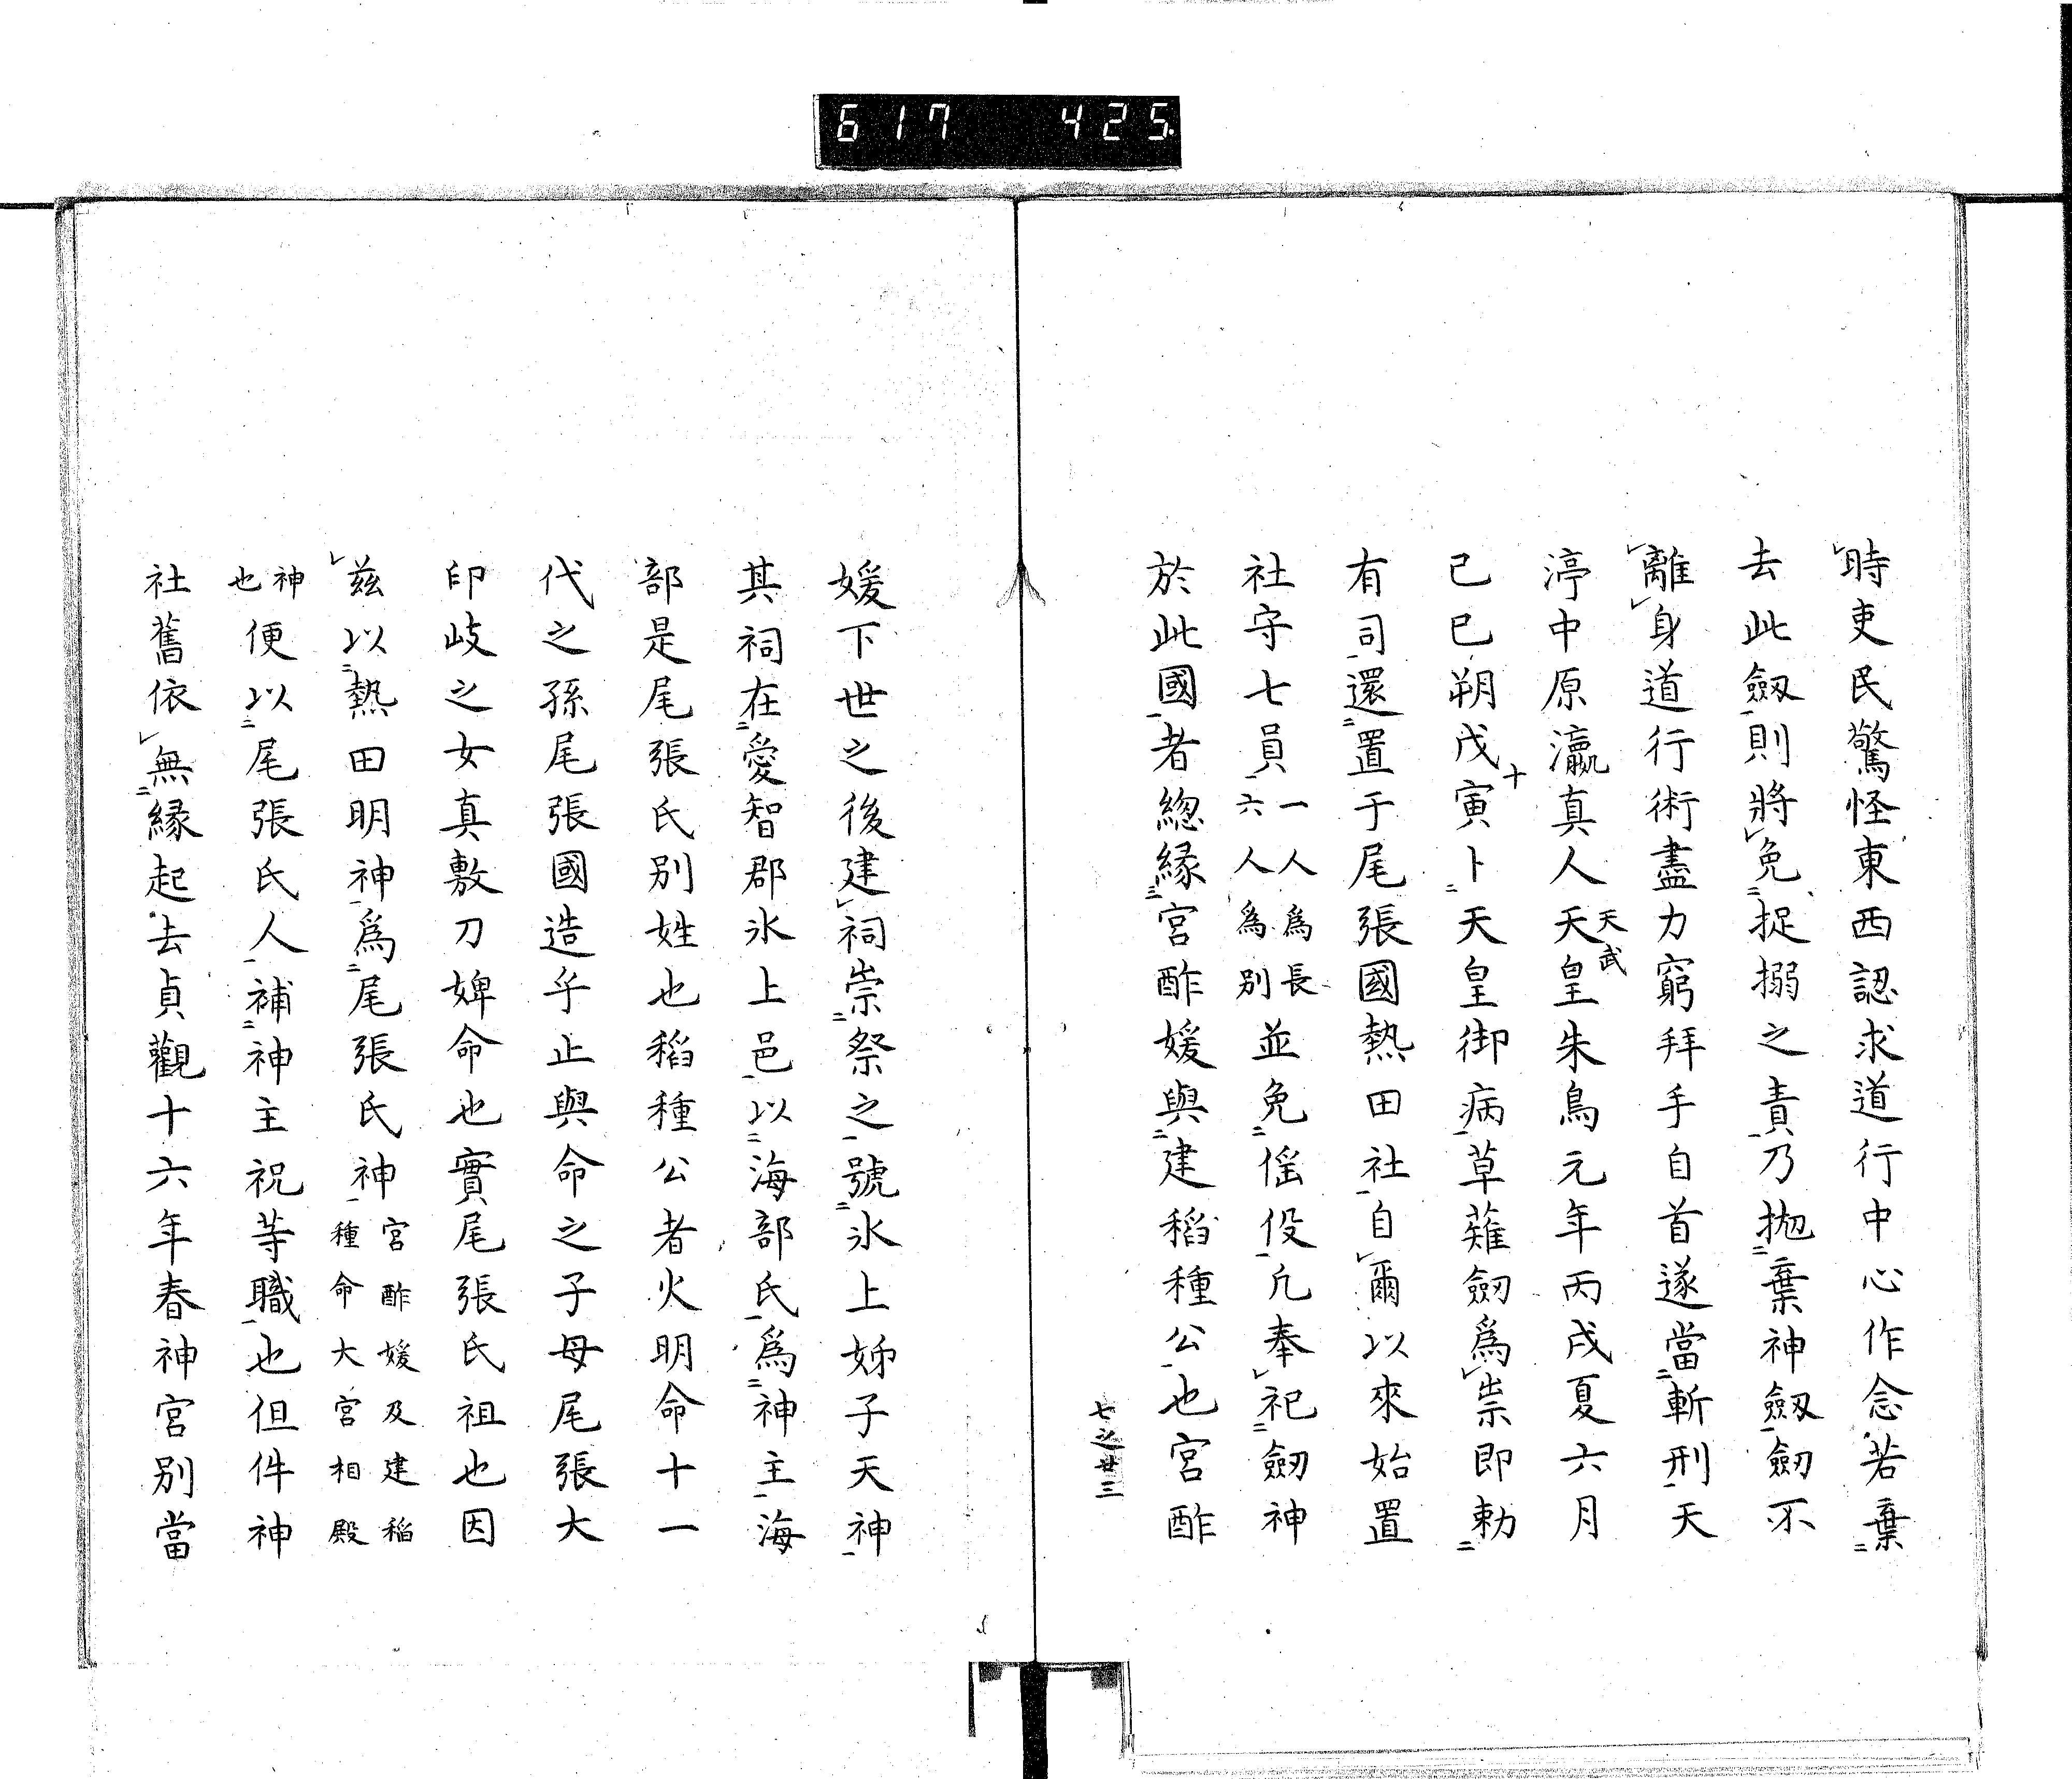 617 425
時吏民驚怪東西認求道行中心作念若棄
去此劔則將免捉搦之責乃抛棄神劔劔不
離身道行術盡力窮拜手自首遂當斬刑天
渟中原瀛真人天皇天武朱鳥元年丙戌夏六月
己巳朔戊寅十卜天皇御病草薙劔為祟即勅
有司還置于尾張國熱田社自爾以來始置
社守七員一人爲長六人爲別並免徭役凢奉祀劔神
於此國者緫縁宮酢媛與建稻種公也宮酢
七之廿三
媛下世之後建祠崇祭之號氷上姊子天神
其祠在愛智郡氷上邑以海部氏爲神主海
部是尾張氏別姓也稻種公者火明命十一
代之孫尾張國造乎止與命之子母尾張大
印岐之女真敷刀婢命也實尾張氏祖也因
兹以熱田明神爲尾張氏神宮酢媛及建稲種命大宮相殿
神也便以尾張氏人補神主祝等職也但件神
社舊依無縁起去貞觀十六年春神宮別當